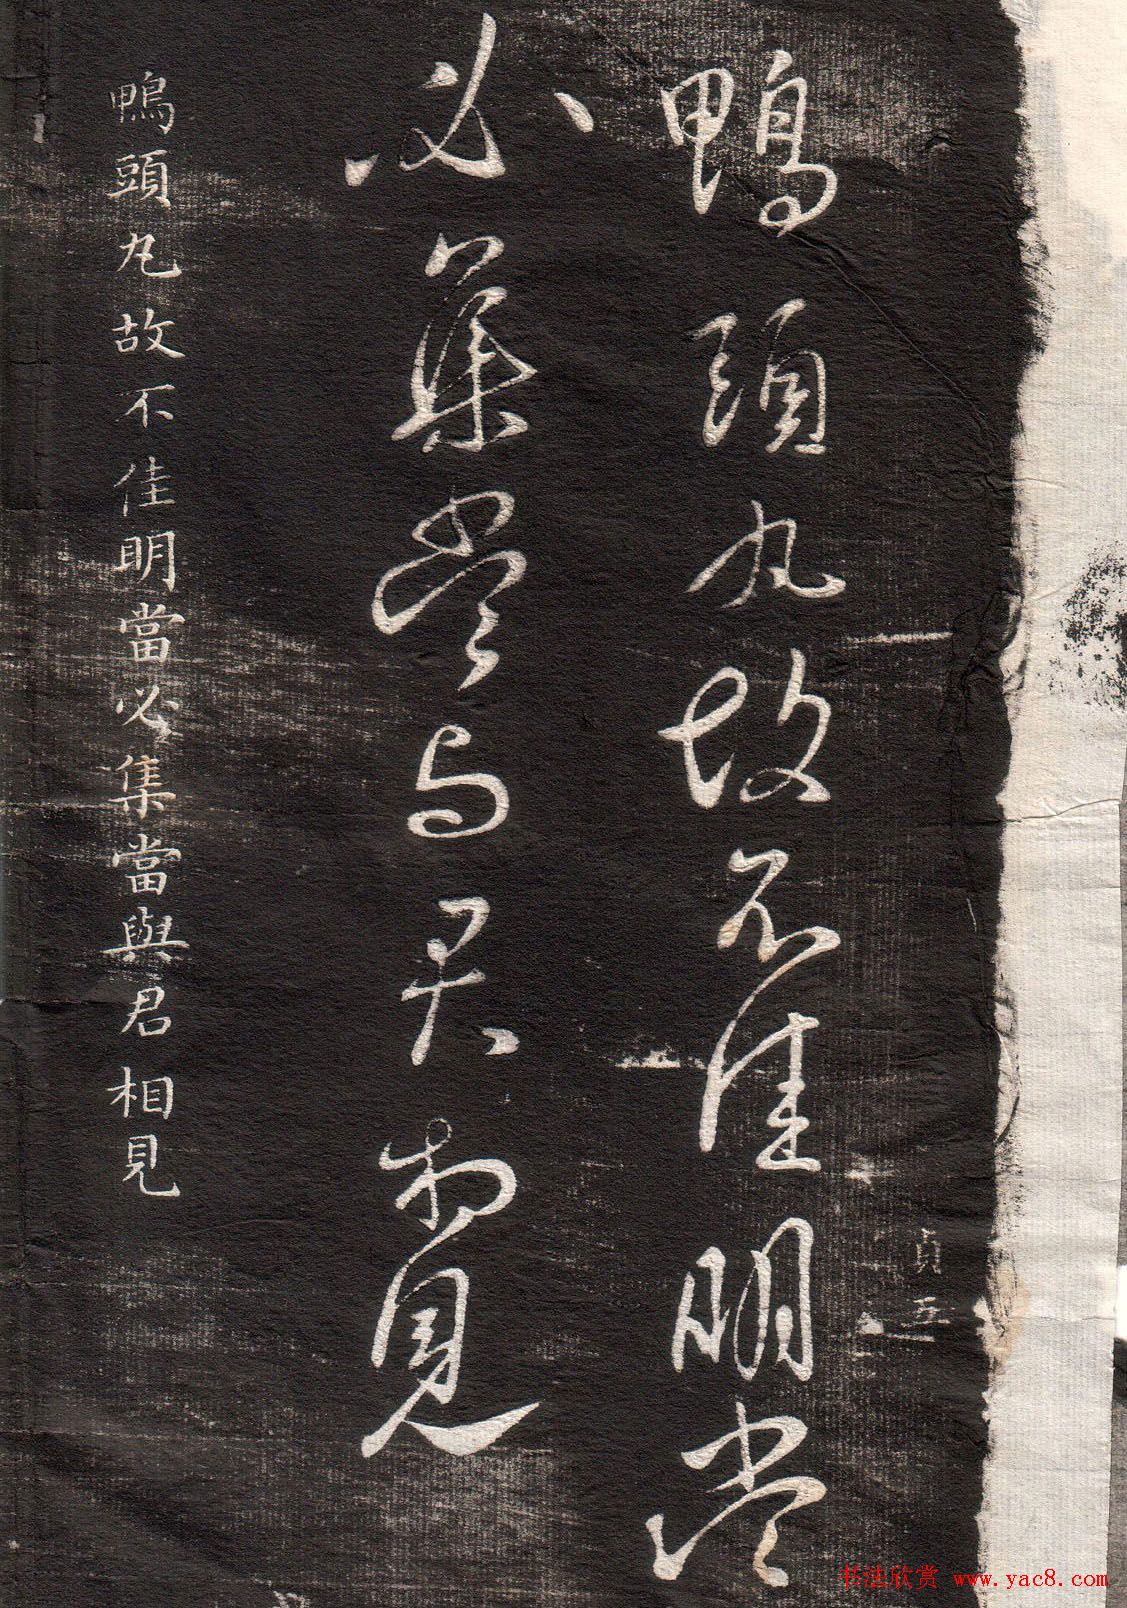 貞五
鴨頭丸故不佳明當
必集當與君相見
鴨頭丸故不佳明當必集當與君相見
书法欣赏 www.yac8.com